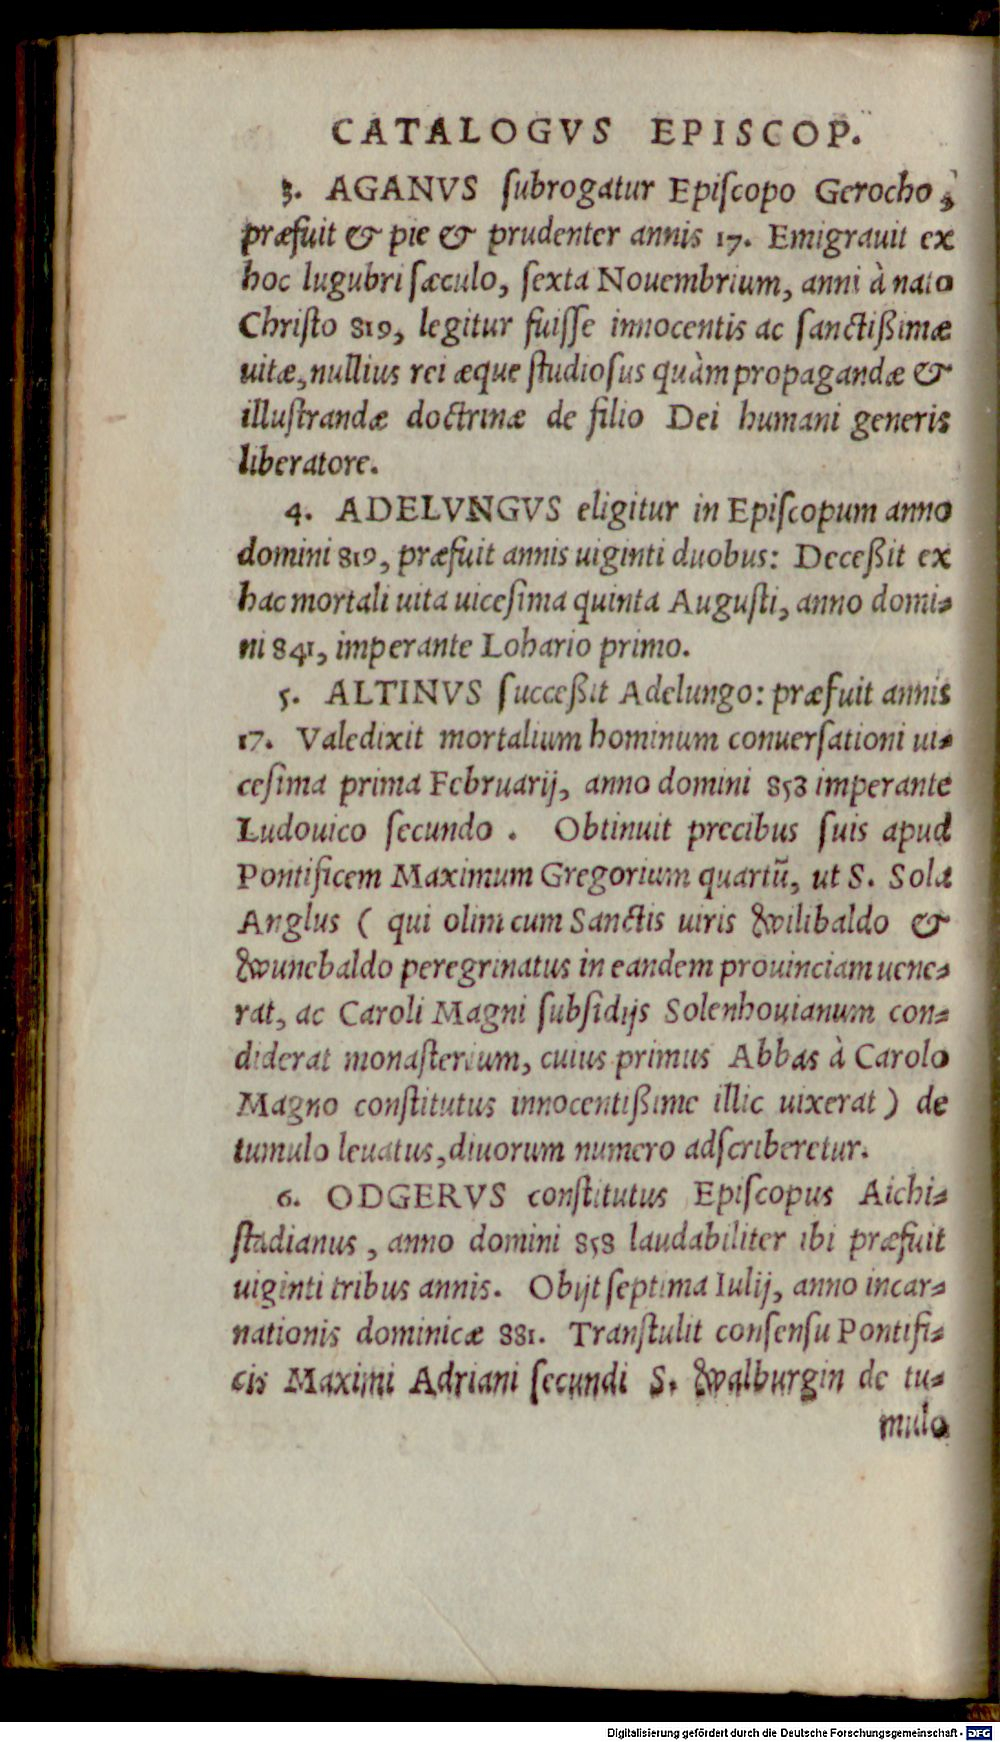 CATALOGVS EPISCOP.
3. AGANVS ſubrogatur Epiſcopo Gerocho,
præfuit & pie & prudenter annis 17. Emigrauit ex
hoc lugubri ſæculo, ſexta Nouembrium, anni à nato
Chriſto 819, legitur fuiſſe innocentis ac ſanctißimæ
uitæ, nullius rei æque ſtudioſus quàm propagandæ &
illuſtrandæ doctrinæ de filio Dei humani generis
liberatore.
4. ADELVNGVS eligitur in Epiſcopum anno
domini 819, præfuit annis uiginti duobus: Deceßit ex
hac mortali uita uiceſima quinta Auguſti, anno domi⸗
ni 841, imperante Lohario primo.
5. ALTINVS ſucceßit Adelungo: præfuit annis
17. Valedixit mortalium hominum conuerſationi ui⸗
ceſima prima Februarij, anno domini 858 imperante
Ludouico ſecundo. Obtinuit precibus ſuis apud
Pontificem Maximum Gregorium quartũ, ut S. Sola
Anglus (qui olim cum Sanctis uiris Wilibaldo &
Wunebaldo peregrinatus in eandem prouinciam uene⸗
rat, ac Caroli Magni ſubſidijs Solenhouianum con⸗
diderat monaſterium, cuius primus Abbas à Carolo
Magno conſtitutus innocentißime illic uixerat) de
tumulo leuatus, diuorum numero adſcriberetur.
6. ODGERVS conſtitutus Epiſcopus Aichi⸗
ſtadianus, anno domini 858 laudabiliter ibi præfuit
uiginti tribus annis. Obijt ſeptima Iulij, anno incar⸗
nationis dominicæ 881. Tranſtulit conſenſu Pontifi⸗
cis Maximi Adriani ſecundi S. Walburgin de tu⸗
mulo
Digitalisierung gefördert durch die Deutsche Forschungsgemeinschaft - DFG